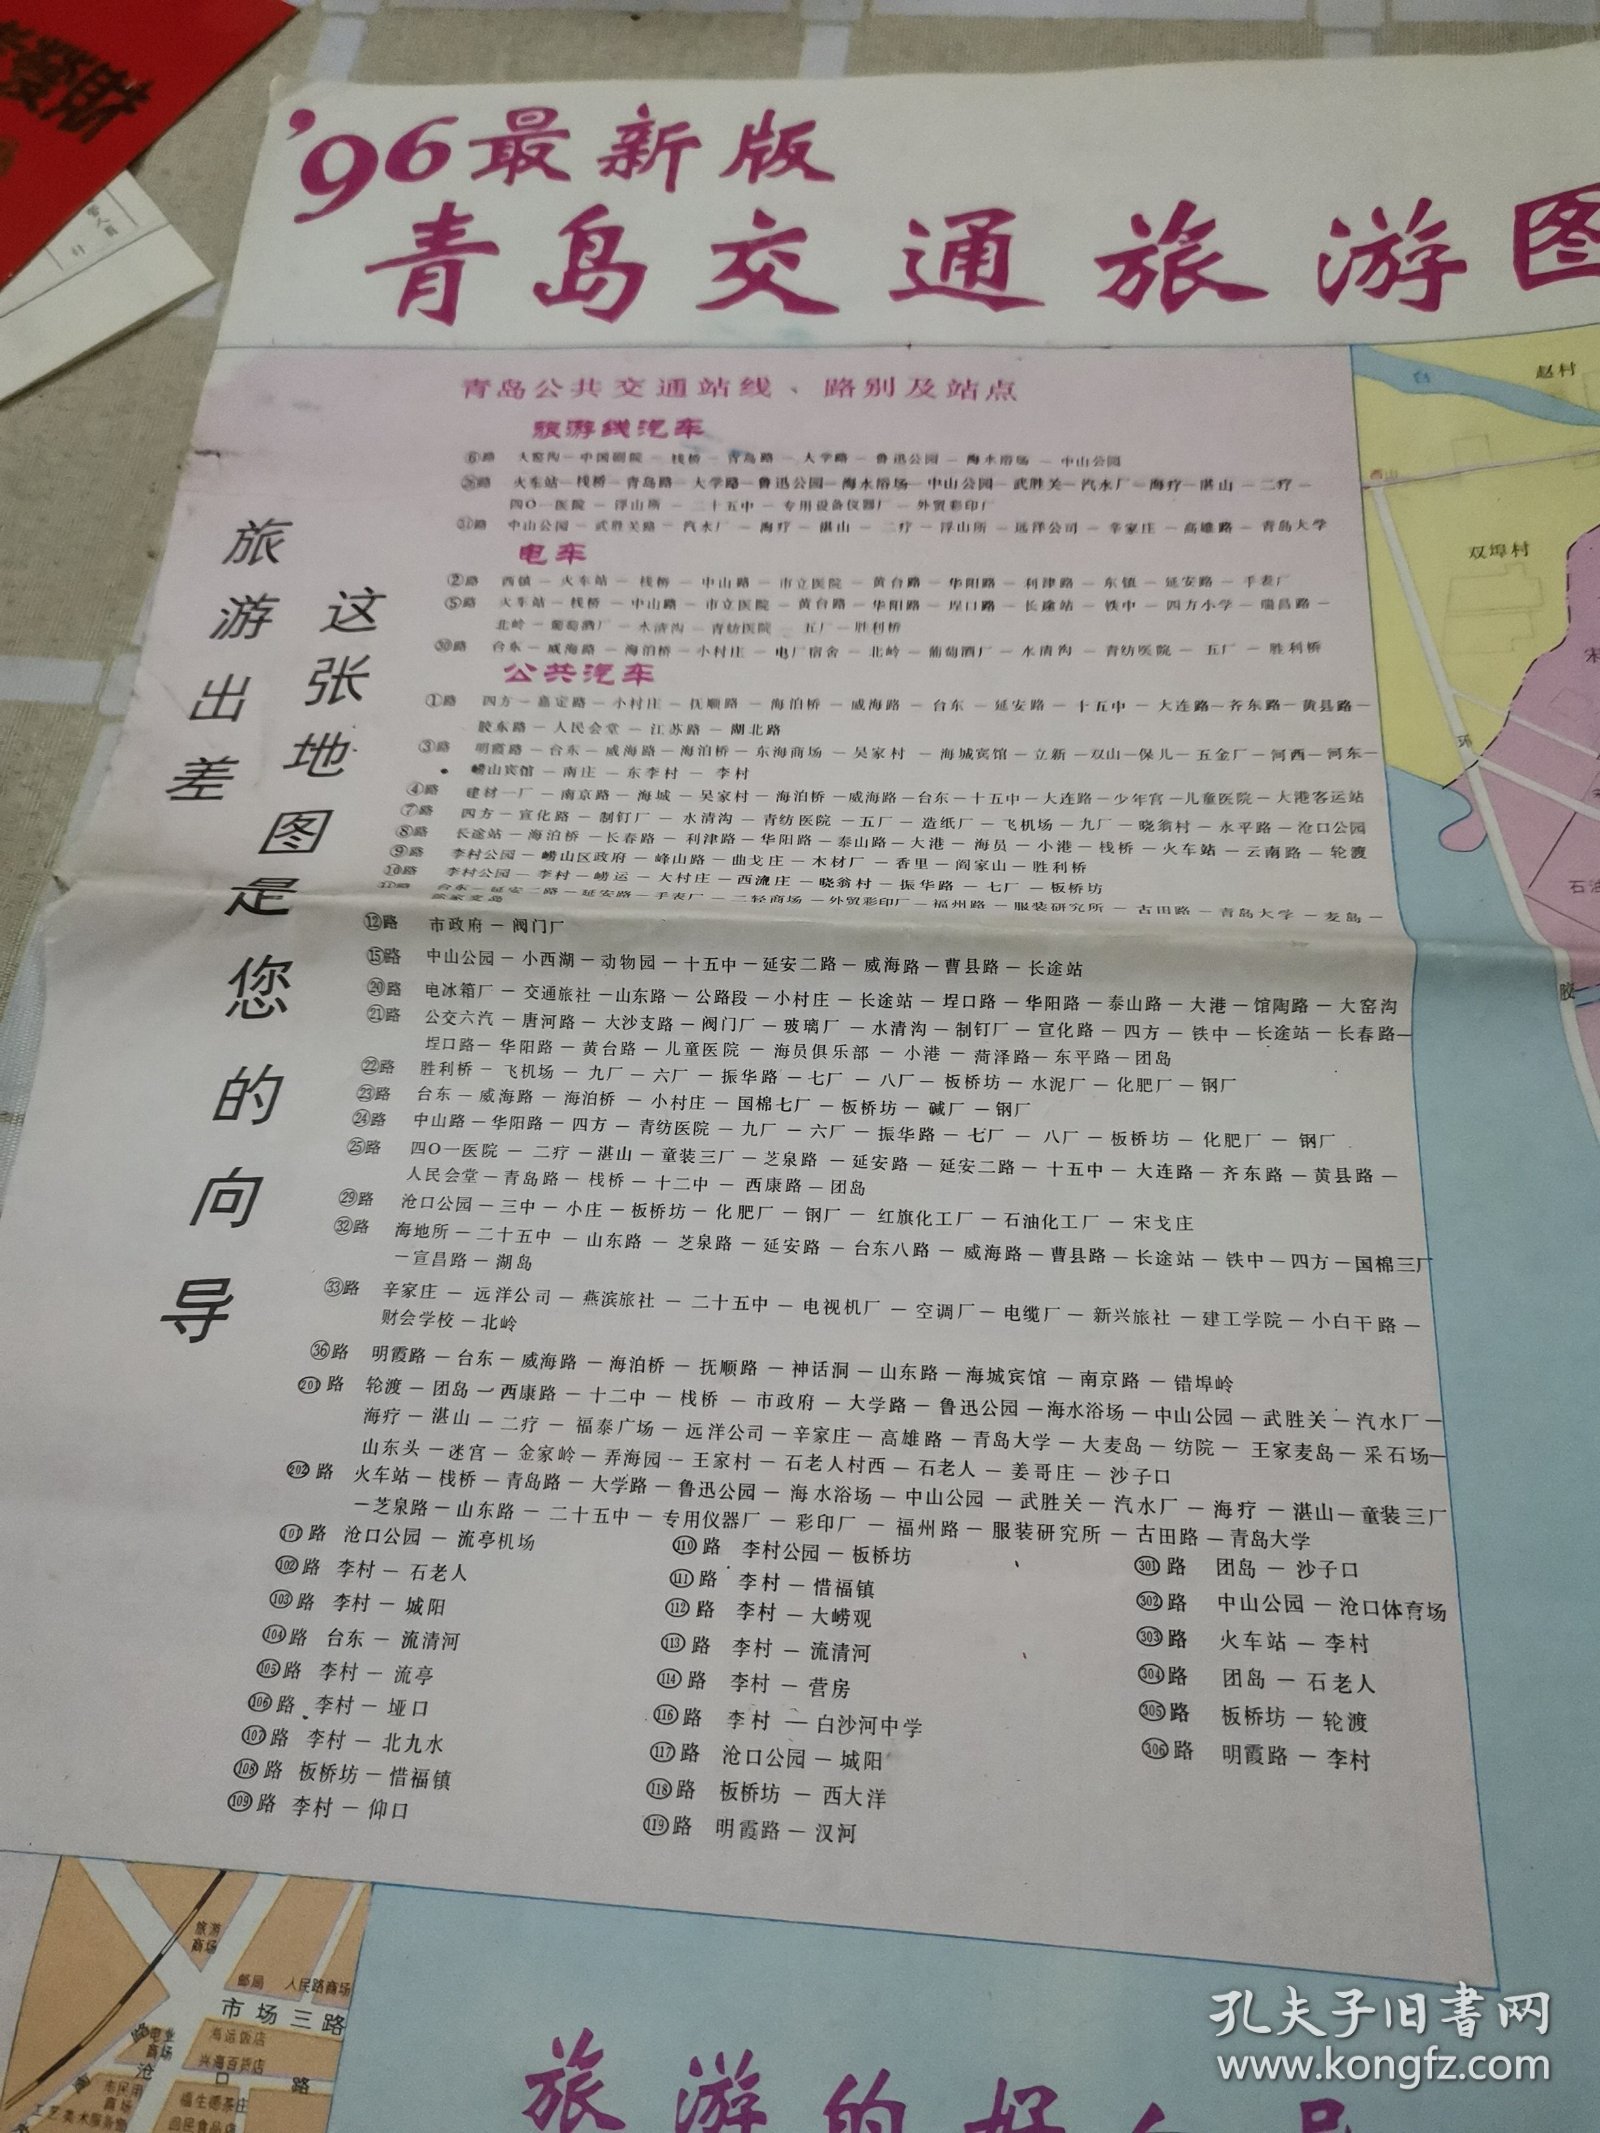 '96最新版
青岛交通旅游图
青岛公共交通站线、路别及站点
旅游线汽车
⑥路 大窑沟－中国剧院－栈桥－青岛路－大学路－鲁迅公园－海水浴场－中山公园
㉖路 火车站－栈桥－青岛路－大学路－鲁迅公园－海水浴场－中山公园－武胜关－汽水厂－海疗－湛山－二疗－
四O一医院－浮山所－二十五中－专用设备仪器厂－外贸彩印厂
㉛路 中山公园－武胜关路－汽水厂－海疗－湛山－二疗－浮山所－远洋公司－辛家庄－高雄路－青岛大学
电车
②路 西镇－火车站－栈桥－中山路－市立医院－黄台路－华阳路－利津路－东镇－延安路－手表厂
⑤路 火车站－栈桥－中山路－市立医院－黄台路－华阳路－埕口路－长途站－铁中－四方小学－瑞昌路－
北岭－葡萄酒厂－水清沟－青纺医院－五厂－胜利桥
㉚路 台东－威海路－海泊桥－小村庄－电厂宿舍－北岭－葡萄酒厂－水清沟－青纺医院－五厂－胜利桥
公共汽车
①路 四方－嘉定路－小村庄－抚顺路－海泊桥－威海路－台东－延安路－十五中－大连路－齐东路－黄县路－
胶东路－人民会堂－江苏路－湖北路
③路 明霞路－台东－威海路－海泊桥－东海商场－吴家村－海城宾馆－立新－双山－保儿－五金厂－河西－河东－
崂山宾馆－南庄－东李村－李村
④路 建材一厂－南京路－海城－吴家村－海泊桥－威海路－台东－十五中－大连路－少年宫－儿童医院－大港客运站
⑦路 四方－宣化路－制钉厂－水清沟－青纺医院－五厂－造纸厂－飞机场－九厂－晓翁村－永平路－沧口公园
⑧路 长途站－海泊桥－长春路－利津路－华阳路－泰山路－大港－海员－小港－栈桥－火车站－云南路－轮渡
⑨路 李村公园－崂山区政府－峰山路－曲戈庄－木材厂－香里－阎家山－胜利桥
⑩路 李村公园－李村－崂运－大村庄－西流庄－晓翁村－振华路－七厂－板桥坊
⑪路 台东－延安二路－延安路－手表厂－二轻商场－外贸彩印厂－福州路－服装研究所－古田路－青岛大学－麦岛－
⑫路 市政府－阀门厂
⑮路 中山公园－小西湖－动物园－十五中－延安二路－威海路－曹县路－长途站
⑳路 电冰箱厂－交通旅社－山东路－公路段－小村庄－长途站－埕口路－华阳路－泰山路－大港－馆陶路－大窑沟
㉑路 公交六汽－唐河路－大沙支路－阀门厂－玻璃厂－水清沟－制钉厂－宣化路－四方－铁中－长途站－长春路－
埕口路－华阳路－黄台路－儿童医院－海员俱乐部－小港－菏泽路－东平路－团岛
㉒路 胜利桥－飞机场－九厂－六厂－振华路－七厂－八厂－板桥坊－水泥厂－化肥厂－钢厂
㉓路 台东－威海路－海泊桥－小村庄－国棉七厂－板桥坊－碱厂－钢厂
㉔路 中山路－华阳路－四方－青纺医院－九厂－六厂－振华路－七厂－八厂－板桥坊－化肥厂－钢厂
㉕路 四O一医院－二疗－湛山－童装三厂－芝泉路－延安路－延安二路－十五中－大连路－齐东路－黄县路－
人民会堂－青岛路－栈桥－十二中－西康路－团岛
㉙路 沧口公园－三中－小庄－板桥坊－化肥厂－钢厂－红旗化工厂－石油化工厂－宋戈庄
㉜路 海地所－二十五中－山东路－芝泉路－延安路－台东八路－威海路－曹县路－长途站－铁中－四方－国棉三厂
－宣昌路－湖岛
㉝路 辛家庄－远洋公司－燕滨旅社－二十五中－电视机厂－空调厂－电缆厂－新兴旅社－建工学院－小白干路－
财会学校－北岭
㊱路 明霞路－台东－威海路－海泊桥－抚顺路－神话洞－山东路－海城宾馆－南京路－错埠岭
201路 轮渡－团岛－西康路－十二中－栈桥－市政府－大学路－鲁迅公园－海水浴场－中山公园－武胜关－汽水厂－
海疗－湛山－二疗－福泰广场－远洋公司－辛家庄－高雄路－青岛大学－大麦岛－纺院－王家麦岛－采石场－
山东头－迷宫－金家岭－弄海园－王家村－石老人村西－石老人－姜哥庄－沙子口
202路 火车站－栈桥－青岛路－大学路－鲁迅公园－海水浴场－中山公园－武胜关－汽水厂－海疗－湛山－童装三厂
－芝泉路－山东路－二十五中－专用仪器厂－彩印厂－福州路－服装研究所－古田路－青岛大学
101路 沧口公园－流亭机场
102路 李村－石老人
103路 李村－城阳
104路 台东－流清河
105路 李村－流亭
106路 李村－垭口
107路 李村－北九水
108路 板桥坊－惜福镇
109路 李村－仰口
110路 李村公园－板桥坊
111路 李村－惜福镇
112路 李村－大崂观
113路 李村－流清河
114路 李村－营房
116路 李村－白沙河中学
117路 沧口公园－城阳
118路 板桥坊－西大洋
119路 明霞路－汉河
301路 团岛－沙子口
302路 中山公园－沧口体育场
303路 火车站－李村
304路 团岛－石老人
305路 板桥坊－轮渡
306路 明霞路－李村
这张地图是您的向导
旅游出差
赵村
双埠村
环
胶
石油
旅游商场
邮局
人民路商场
市场三路
海运饭店
兴海百货店
福生德茶庄
回民食品店
工艺美术服务部
旅游的好
孔夫子旧书网
www.kongfz.com